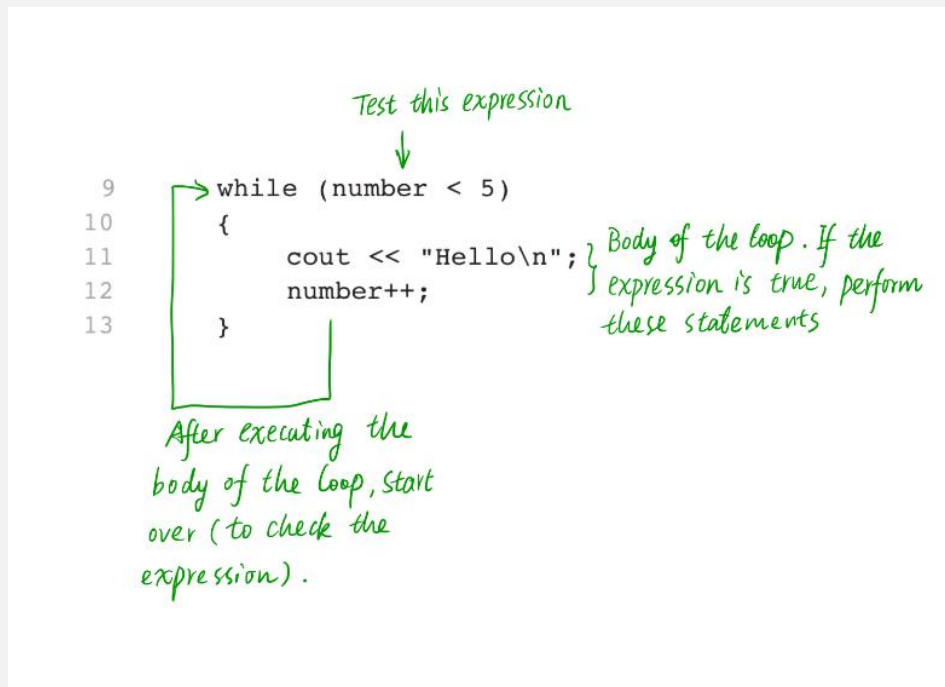 Test this expression
9 while (number < 5)
10 {
11 cout << "Hello\n";
12 number++;
13 }
Body of the loop. If the
expression is true, perform
these statements
After executing the
body of the loop, start
over (to check the
expression).